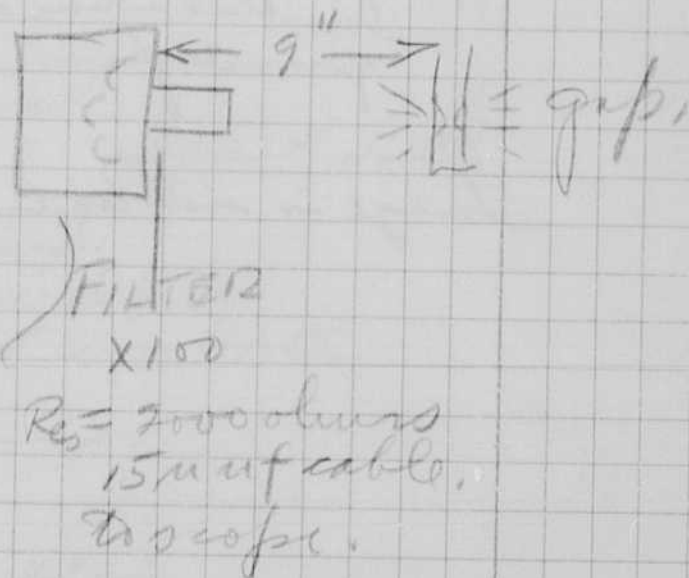 9"
gap.
FILTER
X100
Res = 2000 ohms
15 µµf cable.
to scope.